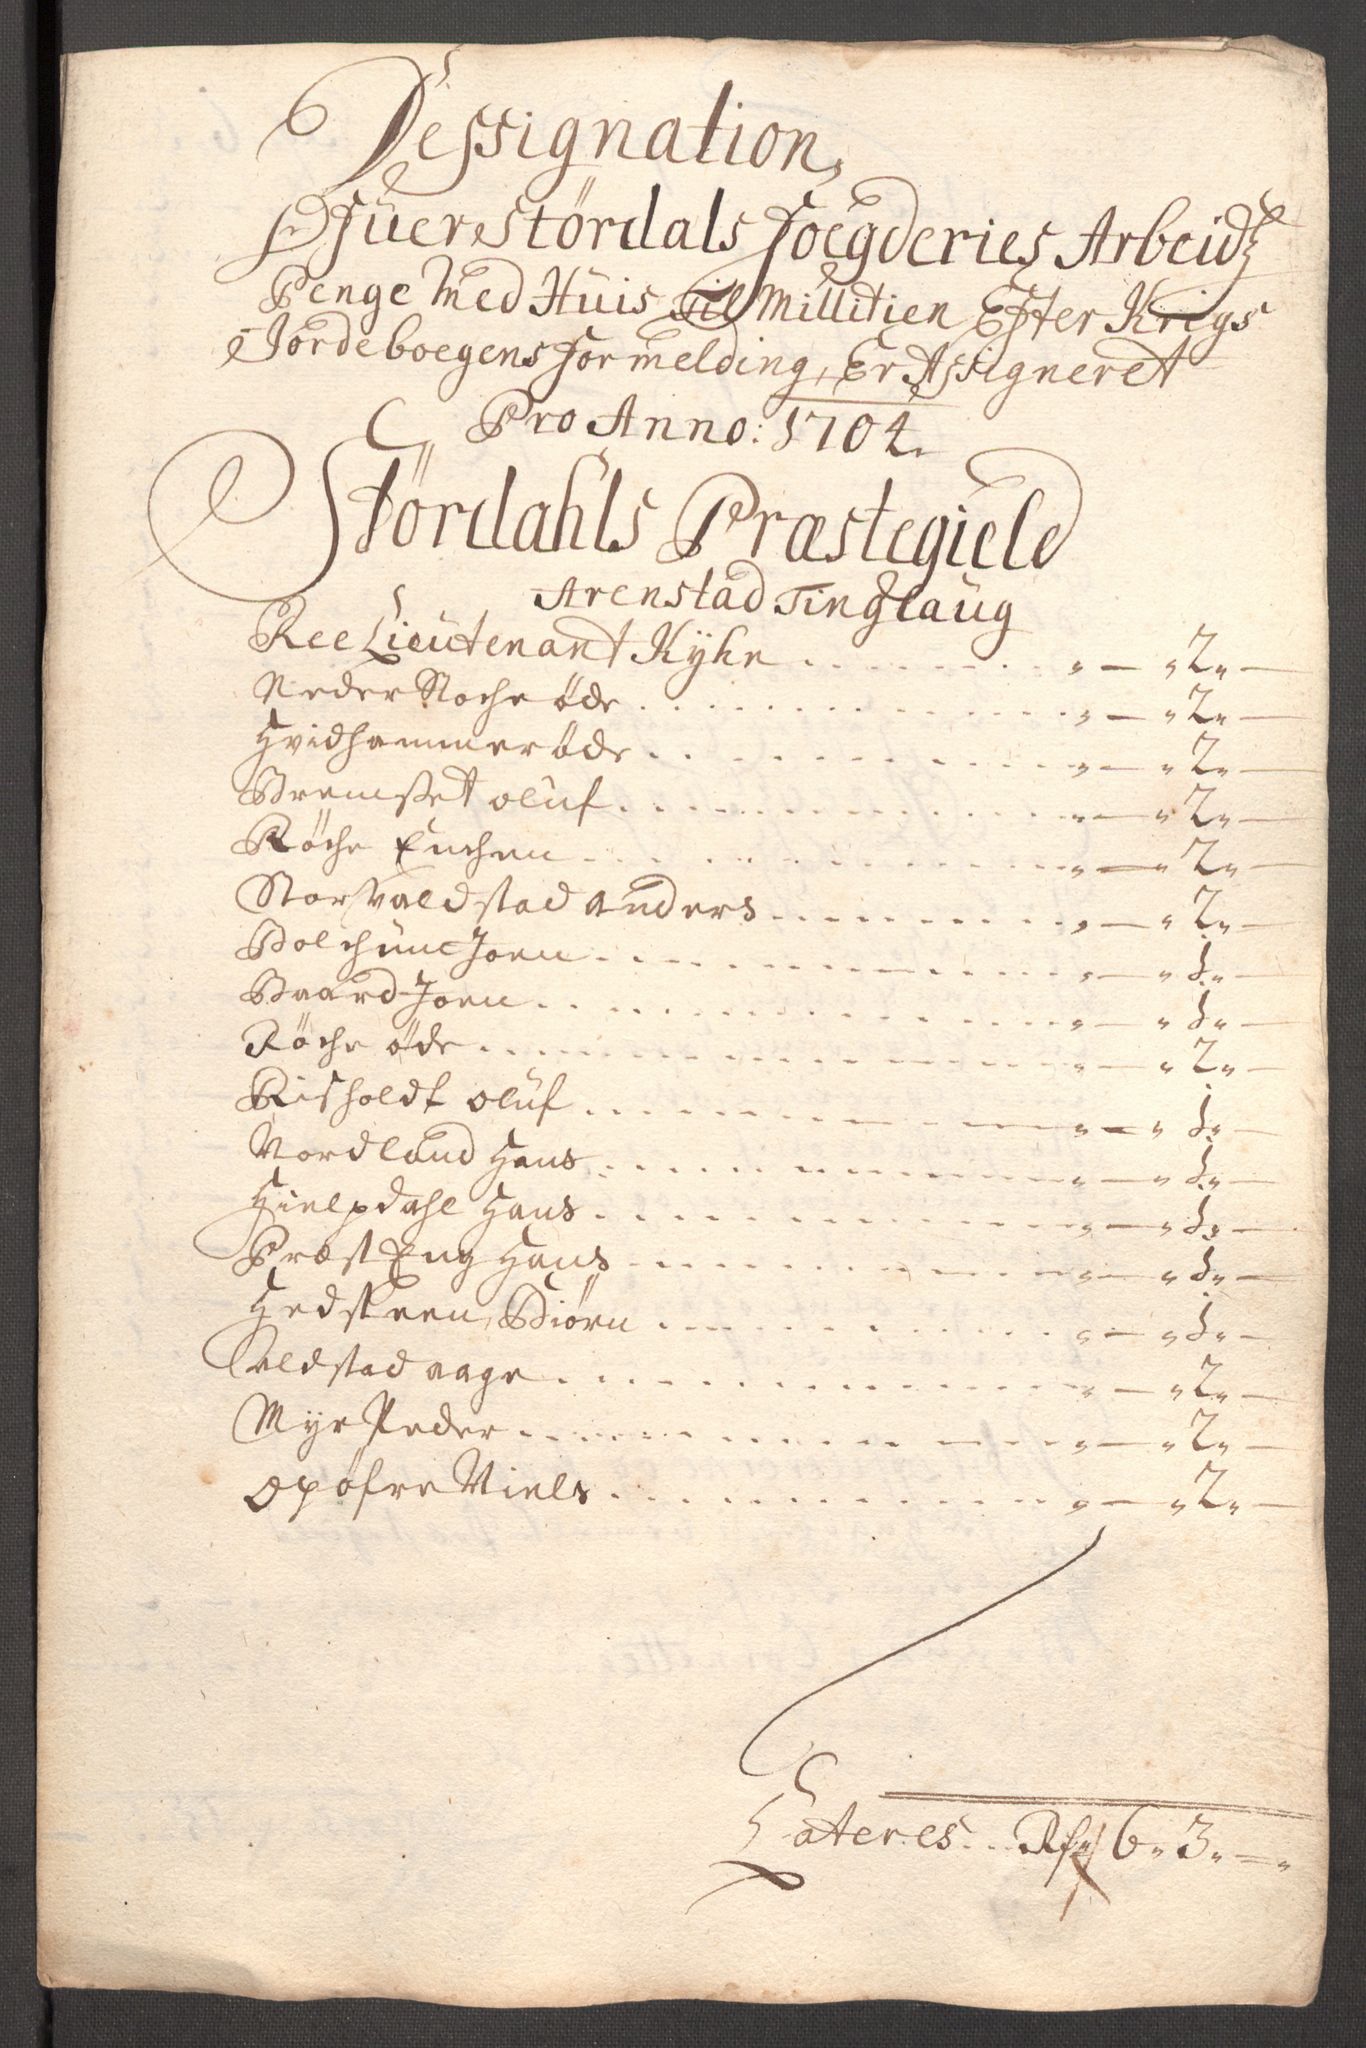 Dessignation,
Ofuer Størdals Foegderies Arbeidtz
Penge med Huis Til Millitien Efter Krigs
Jordeboegens formelding, Er Assigneret
Pro Anno: 1704.
Størdahls Præstegield
Arenstad Tinglaug
Ree Lieutenant Kÿhn . . . „ — „ 2 „ —
Neder Stoche øde . . . „ — „ 2 „ —
Hvidhammer øde . . . „ — „ 2 „ —
Bremset oluf . . . „ — „ 2 „ —
Røche Enchen . . . „ — „ 2 „ —
Storvaldstad anders . . . „ — „ 2 „ —
Bolchune Joen . . . „ — „ 1 „ —
Baard Joen . . . „ — „ 1 „ —
Røche øde . . . „ — „ 2 „ —
Risholdt oluf . . . „ — „ 1 „ —
Nordlund Hans . . . „ — „ 1 „ —
Hielpdahl Hans . . . „ — „ 1 „ —
Præst Eng Hans . . . „ — „ 1 „ —
Hedsteen, Biørn . . . „ — „ 1 „ —
aldstad aage . . . „ — „ 2 „ —
Myr Peder . . . „ — „ 2 „ —
opøfre Niels . . . „ — „ 2 „ —
Lateres . . . 6 „ 3 „ — „